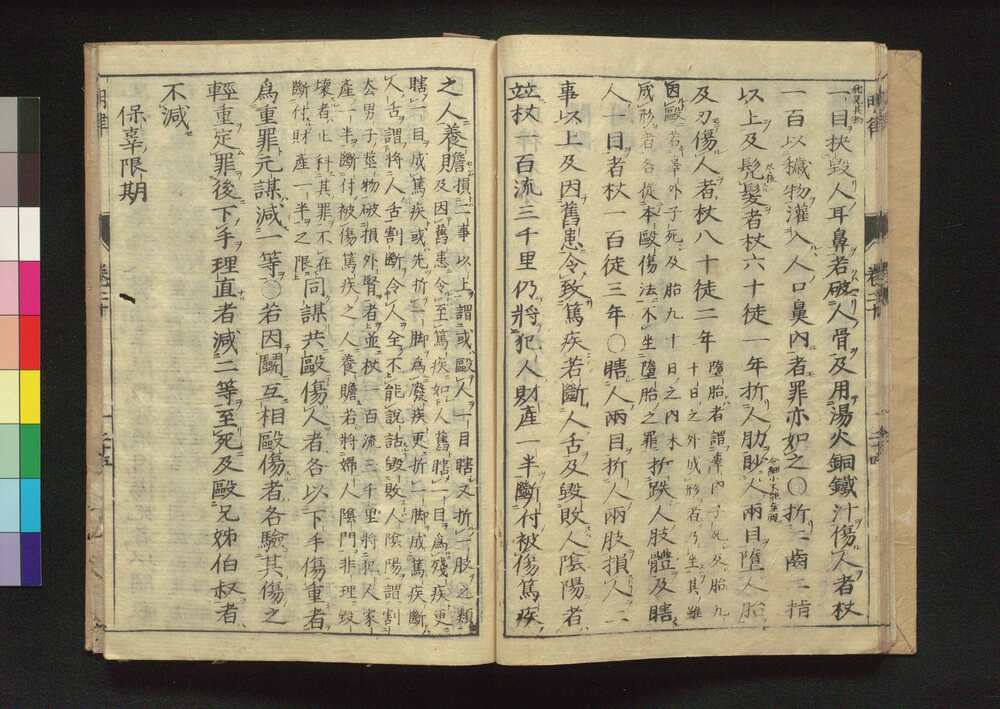 一目抉毀人耳鼻若破人骨及用湯火銅鐵汁傷人者杖
一百以穢物灌入人口鼻內者罪亦如之○折二齒二指
以上及髡髮者杖六十徒一年折人肋眇人兩目墮人胎
及刃傷人者杖八十徒二年
墮胎者謂辜內子死及胎九
十日之外成形者乃坐其雖
因毆若辜外子死及胎九十日之內未
成形者各從本毆傷法不坐墮胎之罪
折跌人肢體及瞎
人一目者杖一百徒三年○瞎人兩目折人兩肢損人二
事以上及因舊患令致篤疾若斷人舌及毀敗人陰陽者
並杖一百流三千里仍將犯人財產一半斷付被傷篤疾
之人養贍
損二事以上謂或毆人一目瞎又折一肢之類
及因舊患令至篤疾如人舊瞎一目為殘疾更
瞎一目成篤疾或先折一脚為廢疾更折一脚成篤疾斷
人舌謂將人舌割斷令人全不能說話毀敗人陰陽謂割
去男子莖物破損外腎者並杖一百流三千里將犯人家
產一半斷付被傷篤疾之人養贍若將婦人陰門非理毀
壞者止科其罪不在
斷付財產一半之限
同謀共毆傷人者各以下手傷重者
為重罪元謀減一等○若因鬭互相毆傷者各驗其傷之
輕重定罪後下手理直者減二等至死及毆兄姊伯叔者
不減
保辜限期
明律
卷二十